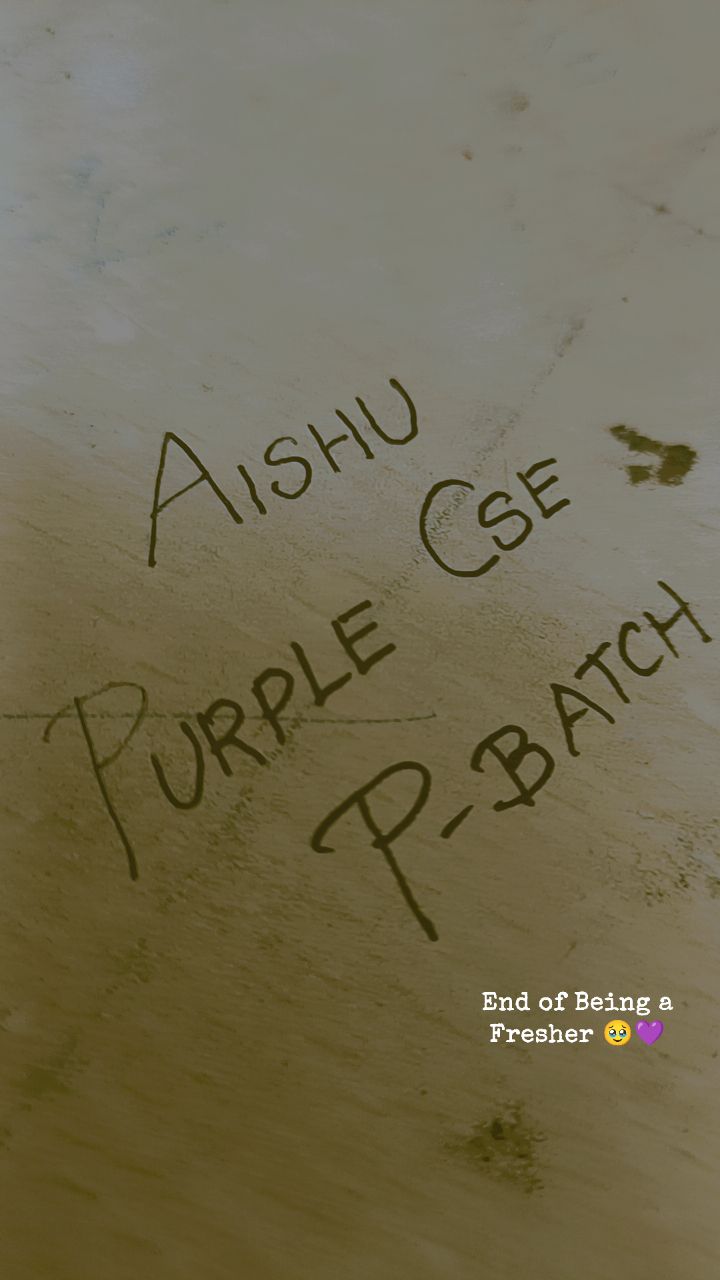 AISHU
CSE
PURPLE
P-BATCH
End of Being a
Fresher 🥹💜